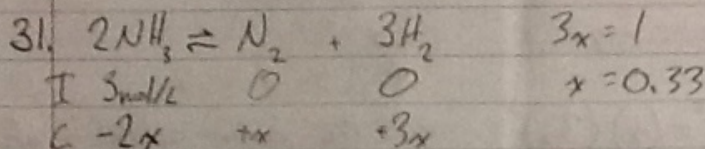 31. 2NH₃ ⇌ N₂ + 3H₂ 3x = 1
I 5mol/L 0 0 x = 0.33
C -2x +x +3x